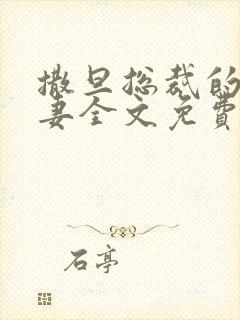 撒旦总裁的
妻全文免費
石亭